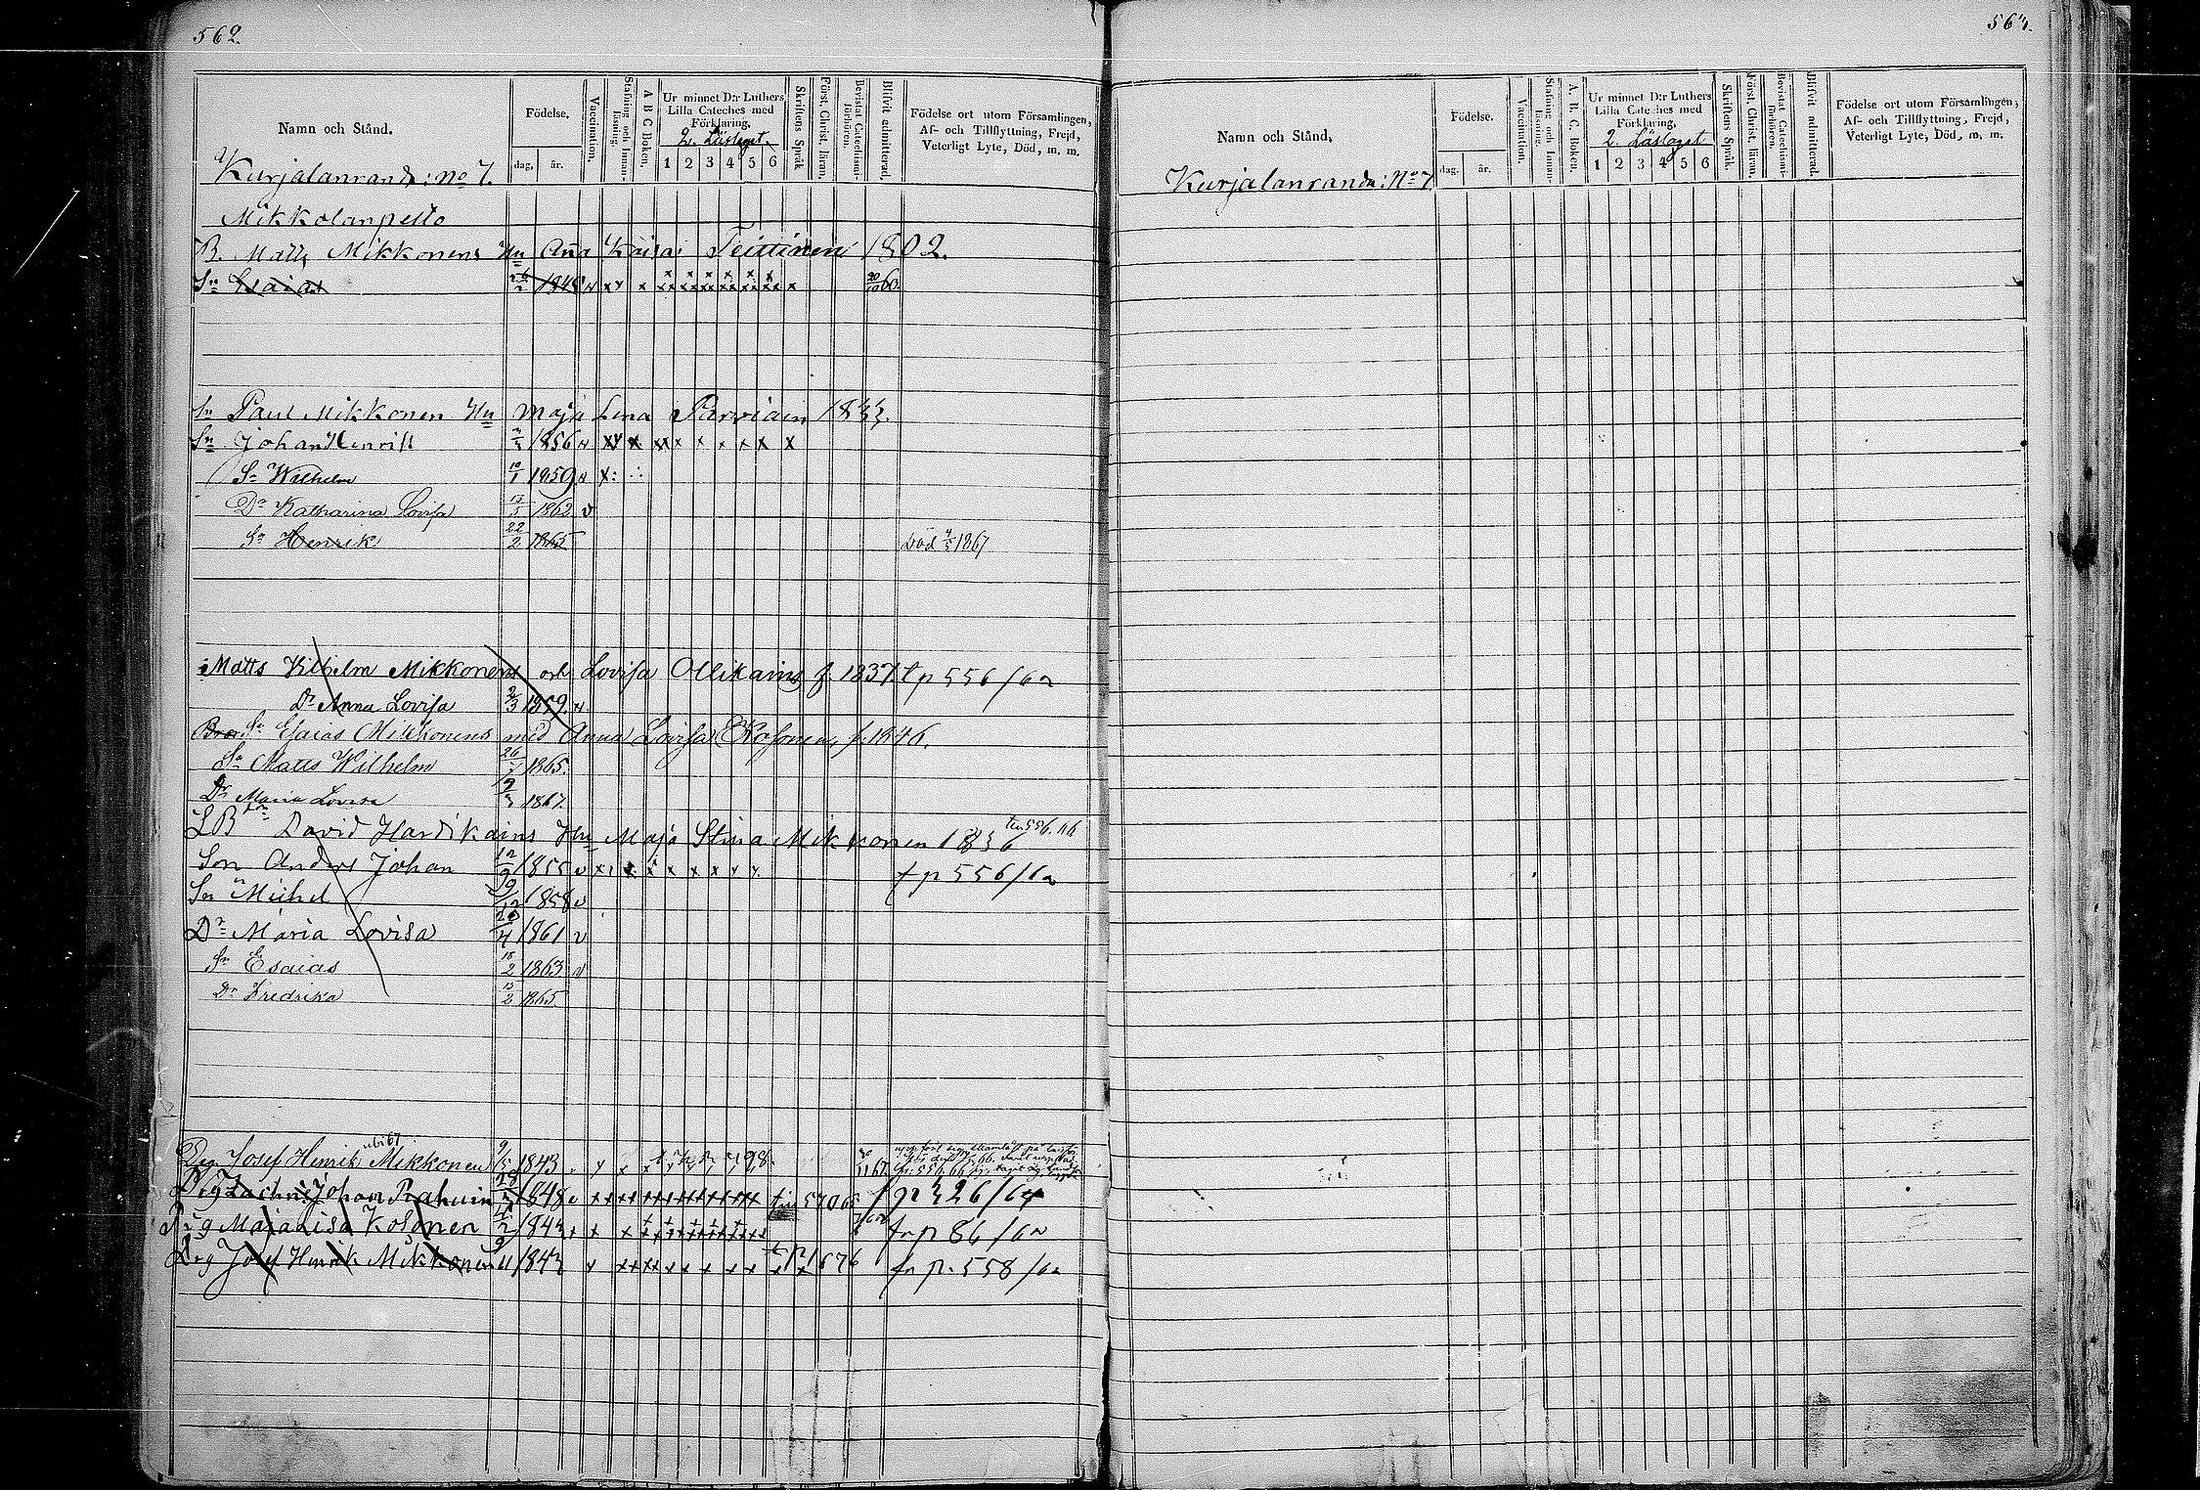 562.
Namn och Stånd.
Födelse.
dag. år.
Vaccination.
Stafning och Innan-läsning.
A B C Boken.
Ur minnet D:r Luthers Lilla Cateches med Förklaring.
2. Läslaget.
1 2 3 4 5 6
Skriftens Språk
Först. Christ. läran.
Bevistat Catechismi-förhören.
Blifvit admitterad.
Födelse ort utom Församlingen, Af- och Tillflyttning, Frejd, Veterligt Lyte, Död, m. m.
Kurjalanranda: No 7.
Mikkolanpelto
B. Matts Mikkonens Hu Anna Kaisa Teittinen 1802.
Sn Esaias 1848 20/10 60.
Sn Paul Mikkonen Hu Maja Lena Parviain 1833.
Sn Johan Henrik 1856
Sn Wilhelm 10/1 1859
Dr Katharina Lovisa 1862
Sn Henrik 22/2 1865 Död 1867
Matts Vilhelm Mikkonens och Lovisa Ollikains f. 1837 tp 556/62
Dr Anna Lovisa 2/3 1859.
Sn Esaias Mikkonens med Anna Lovisa Kosonen, f. 1846.
Sn Matts Wilhelm 26/7 1865.
Dr Maria Lovisa 1867.
LB David Hardikains Hu Maja Stina Mikkonen 1836
Son Anders Johan 12/9 1855 fp 556/62
Sn Michel 1858
Dr Maria Lovisa 1861
Sn Esaias 18/2 1863
Dr Fredrika 15/2 1865
Drg Josef Henrik Mikkonen 1843 ubi 67
Drg Zachris Johan Rahuin 1848 fp 326/64
Pig Maja Lisa Kosonen 1843 fr p 86/62
Drg Josef Henrik Mikkonen 1843 fr p. 558/62
563.
Namn och Stånd.
Födelse.
dag. år.
Vaccination.
Stafning och Innan-läsning.
A. B. C. Boken.
Ur minnet D:r Luthers Lilla Cateches med Förklaring.
2. Läslaget
1 2 3 4 5 6
Skriftens Språk.
Först. Christ. läran.
Bevistat Catechismi-förhören.
Blifvit admitterad.
Födelse ort utom Församlingen, Af- och Tillflyttning, Frejd, Veterligt Lyte, Död, m. m.
Kurjalanranda: No 7